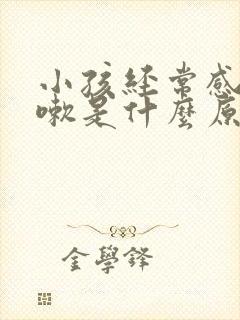 小孩經常感
嗽是什麼原
金學鋒